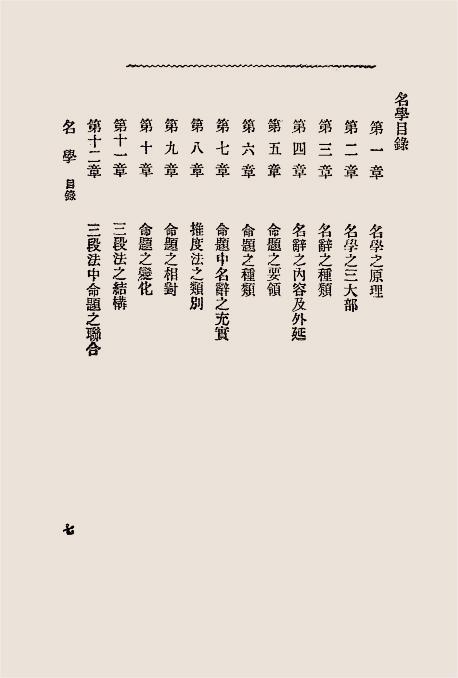 名學目錄
第一章 名學之原理
第二章 名學之三大部
第三章 名辭之種類
第四章 名辭之內容及外延
第五章 命題之要領
第六章 命題之種類
第七章 命題中名辭之充實
第八章 推度法之類別
第九章 命題之相對
第十章 命題之變化
第十一章 三段法之結構
第十二章 三段法中命題之聯合
名學 目錄 七